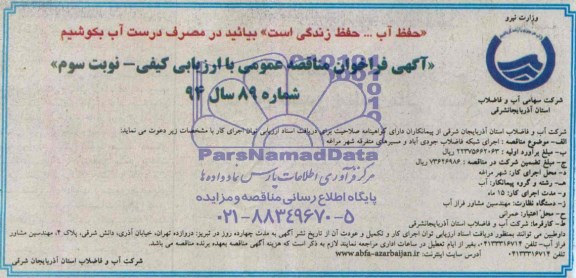 وزارت نیرو
شرکت سهامی آب و فاضلاب
استان آذربایجانشرقی
«حفظ آب ... حفظ زندگی است» بیائید در مصرف درست آب بکوشیم
«آگهی فراخوان مناقصه عمومی با ارزیابی کیفی- نوبت سوم»
شماره ۸۹ سال ۹۴
شرکت آب و فاضلاب استان آذربایجان شرقی از پیمانکاران دارای گواهینامه صلاحیت برای دریافت اسناد ارزیابی توان اجرای کار با مشخصات زیر دعوت می نماید:
الف- موضوع مناقصه : اجرای شبکه فاضلاب جودی آباد و مسیرهای متفرقه شهر مراغه
ب- مبلغ برآورد اولیه : ۲۲۳۷۵۶۶۲۰۶۳ ریال
ج- مبلغ تضمین شرکت در مناقصه : ۷۳۶۲۶۹۸۶ ریال
د- محل اجرای کار: شهر مراغه
هـ- رشته و گروه پیمانکار: آب
و- مدت اجرای کار: ۱۵ ماه
ز- دستگاه نظارت: مهندسین مشاور فراز آب
ح- محل اعتبار: عمرانی
ط- کارفرما: شرکت آب و فاضلاب استان آذربایجانشرقی
داوطلبین می توانند بمنظور دریافت اسناد ارزیابی توان اجرای کار و تکمیل و عودت آن از تاریخ نشر آگهی به مدت چهارده روز در تبریز: دروازه تهران، خیابان آذری، شرقی، پلاک ۴، مهندسین مشاور
فراز آب ۰۴۱۳۳۳۱۶۷۱۴ تلفن: ۰۴۱۳۳۳۱۶۷۱۲، بغیر از ایام تعطیل در ساعات اداری مراجعه نمایند لازم به ذکر است که هزینه آگهی مناقصه بعهده برنده مناقصه می باشد.
آدرس سایت اینترنت: www.abfa-azarbaijan.ir
شرکت آب و فاضلاب استان آذربایجان شرقی
ParsNamadData
مرکز فرآوری اطلاعات پارس نماد داده ها
پایگاه اطلاع رسانی مناقصه و مزایده
۰۲۱-۸۸۳۴۹۶۷۰-۵